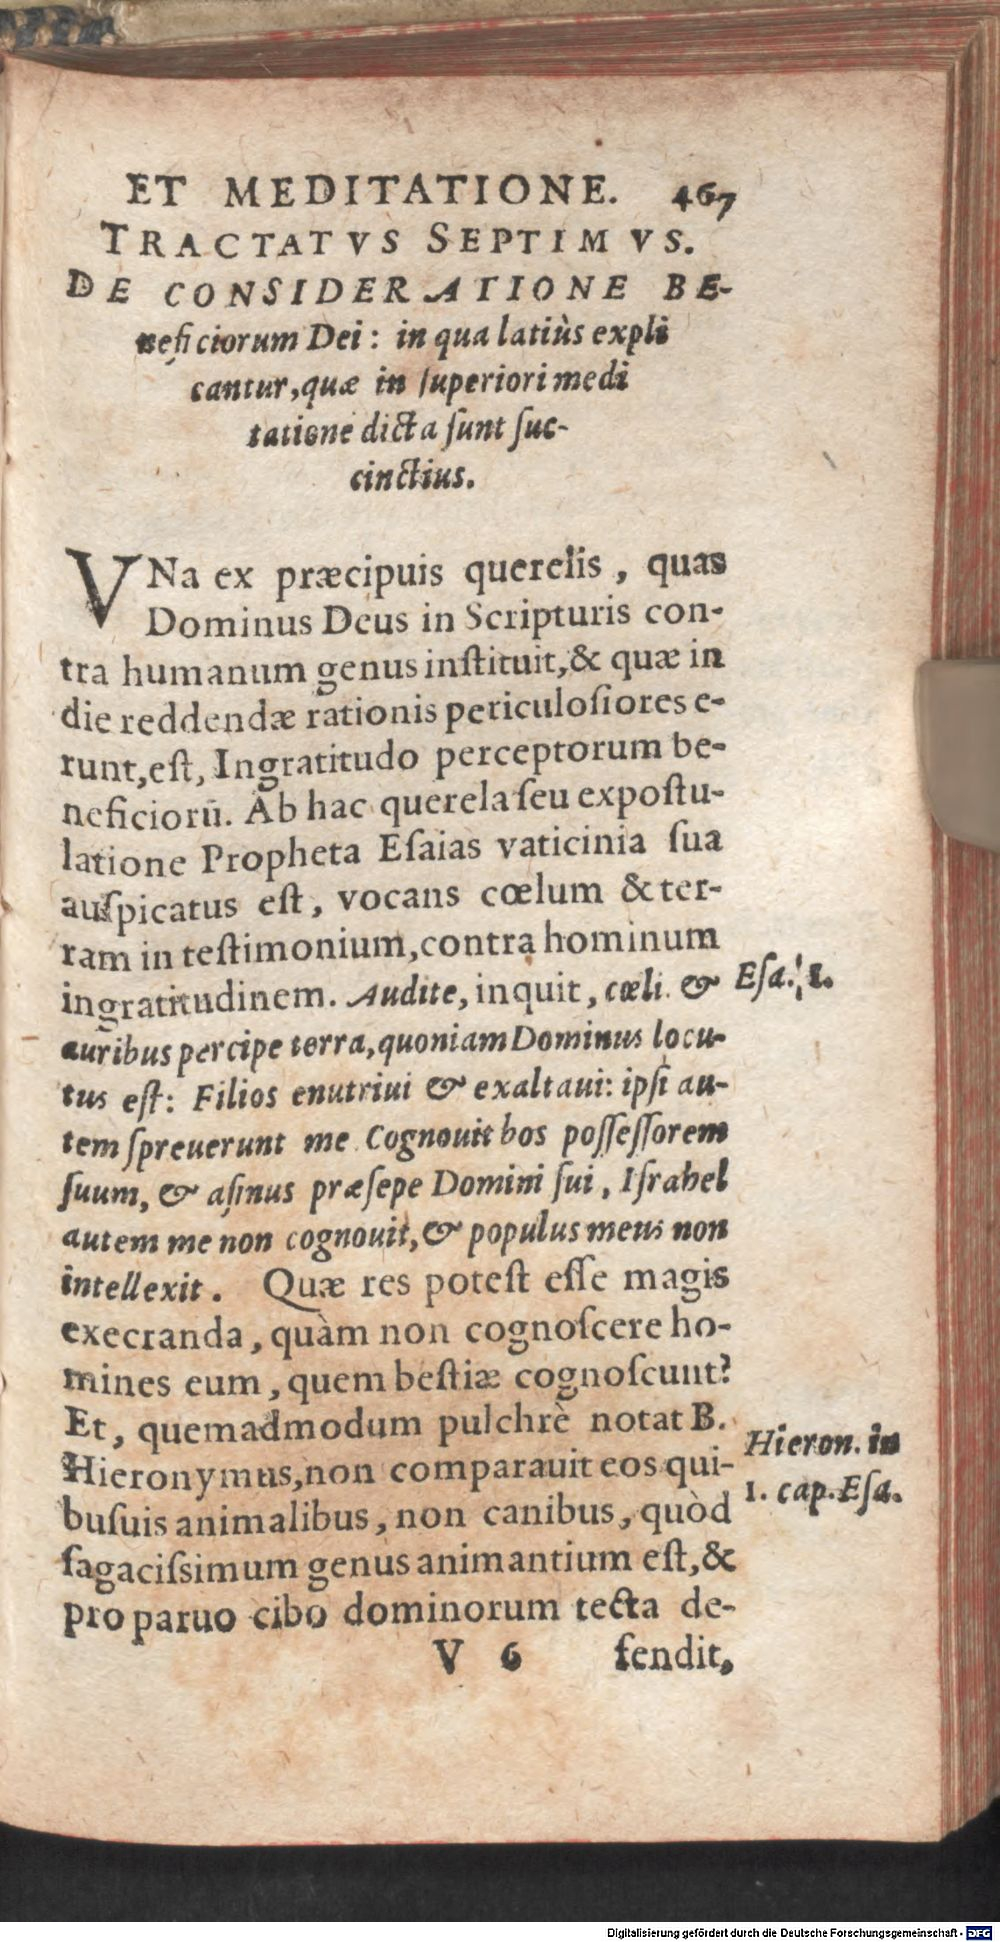 ET MEDITATIONE. 467
TRACTATVS SEPTIMVS.
DE CONSIDERATIONE BE-
neficiorum Dei: in qua latiùs expli
cantur, quæ in ſuperiori medi
tatione dicta ſunt ſuc-
cinctius.
VNa ex præcipuis querelis, quas
Dominus Deus in Scripturis con-
tra humanum genus inſtituit, & quæ in
die reddendæ rationis periculoſiores e-
runt, eſt, Ingratitudo perceptorum be-
neficiorū. Ab hac querela ſeu expoſtu-
latione Propheta Eſaias vaticinia ſua
auſpicatus eſt, vocans cœlum & ter-
ram in teſtimonium, contra hominum
ingratitudinem. Audite, inquit, cœli & Eſa. 1.
auribus percipe terra, quoniam Dominus locu-
tus eſt: Filios enutriui & exaltaui: ipſi au-
tem ſpreuerunt me Cognouit bos poſſeſſorem
ſuum, & aſinus præſepe Domini ſui, Iſrahel
autem me non cognouit, & populus meus non
intellexit. Quæ res poteſt eſſe magis
execranda, quàm non cognoſcere ho-
mines eum, quem beſtiæ cognoſcunt?
Et, quemadmodum pulchrè notat B. Hieron. in
Hieronymus, non comparauit eos qui-
buſuis animalibus, non canibus, quòd 1. cap. Eſa.
ſagaciſsimum genus animantium eſt, &
pro paruo cibo dominorum tecta de-
V 6 fendit,
Digitalisierung gefördert durch die Deutsche Forschungsgemeinschaft - DFG